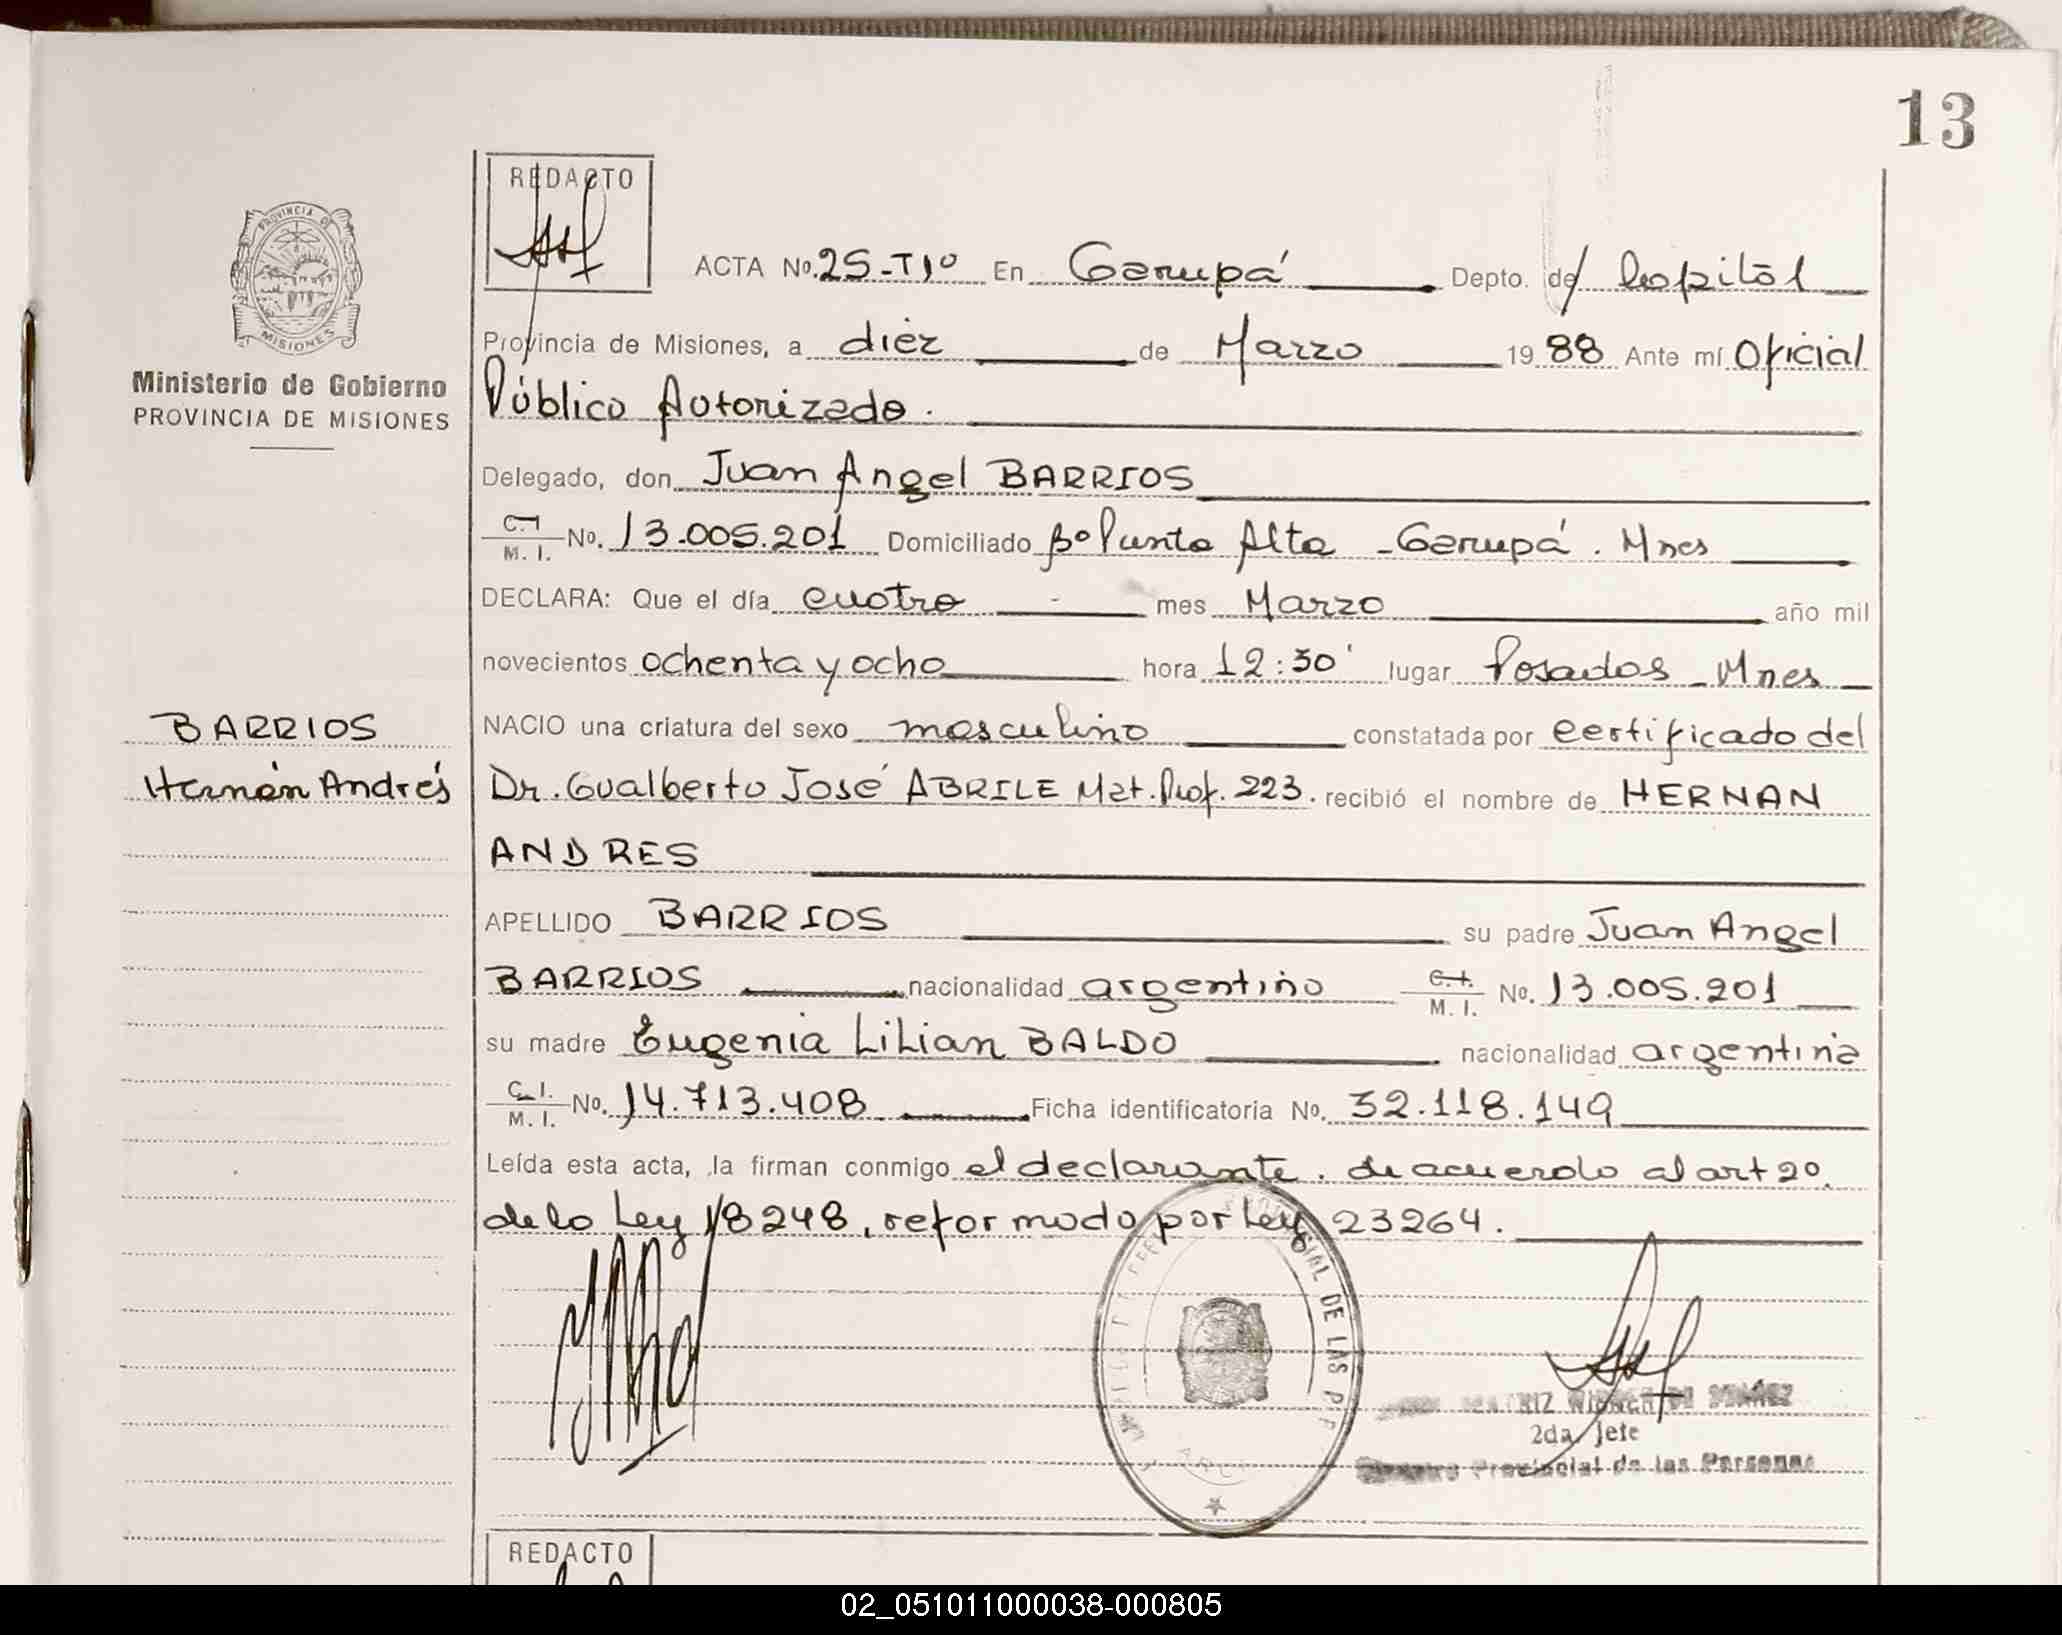 13
REDACTO
PROVINCIA DE
MISIONES
Ministerio de Gobierno
PROVINCIA DE MISIONES
ACTA No. 25-TIº En Garupá Depto. de/ Capital
Provincia de Misiones, a diez de Marzo 19 88 Ante mí Oficial
Público Autorizado.
Delegado, don Juan Angel BARRIOS
C.I. M. I. No. 13.005.201 Domiciliado Bº Punta Alta - Garupá. Mnes
DECLARA: Que el día cuatro mes Marzo año mil
novecientos ochenta y ocho hora 12:30' lugar Posadas - Mnes
BARRIOS
Hernán Andrés
NACIO una criatura del sexo masculino constatada por certificado del
Dr. Gualberto José ABRILE Mat. Prof. 223. recibió el nombre de HERNAN
ANDRES
APELLIDO BARRIOS su padre Juan Angel
BARRIOS nacionalidad argentino C.I. M. I. No. 13.005.201
su madre Eugenia Lilian BALDO nacionalidad argentina
C.I. M. I. No. 14.713.408 Ficha identificatoria No. 32.118.149
Leída esta acta, la firman conmigo el declarante. de acuerdo al art 2º.
de la Ley 18248, reformado por Ley 23264.
PROVINCIAL DE LAS
2da. Jefe
Provincial de las Personas
REDACTO
02_051011000038-000805